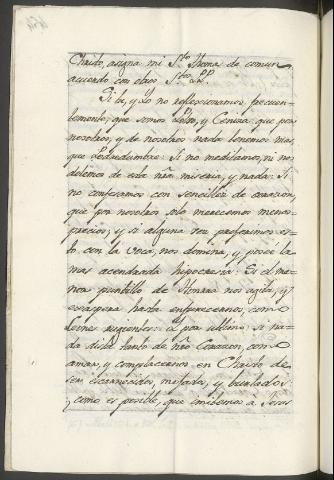 Christo, asigna mi Sto. Thoma de comun
acuerdo con otros Stos. PP.
Si Vs, y Yo no reflexionamos frecuen-
temente, que somos Polvo, y Ceniza: que por
nosotros, y de nosotros nada tenemos mas
que Podredumbre: Si no meditamos, ni nos
dolemos de esta nra miseria, y nada: Si
no confesamos con sencillez de corazon,
que por nosotros solo merecemos menos-
precios; y si alguna vez proferimos es-
to con la voca, nos domina, y poseé la
mas acendrada hipocresia: Si el me-
nor puntillo de Honrra nos agita, y
exaspera hasta enfurecernos, como
Leones rugientes: Y por ultimo: si na-
da dista tanto de nro Corazon, como
amar, y complacernos en Christo de
ser escarnecidos, mofados, y burlados:
¿como es posible, que imitemos à Jesus